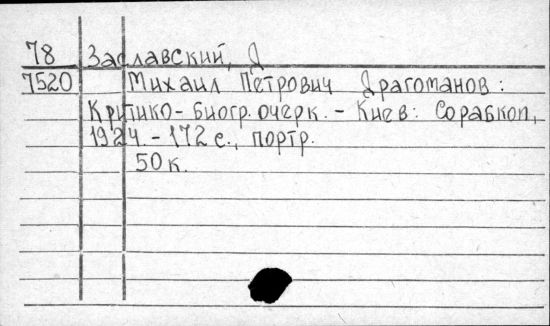 78 Заславский, Д
7520 Михаил Петрович Драгоманов:
Критико-биогр. очерк. - Киев: Сорабкоп,
1924. - 172 с., портр.
50 к.